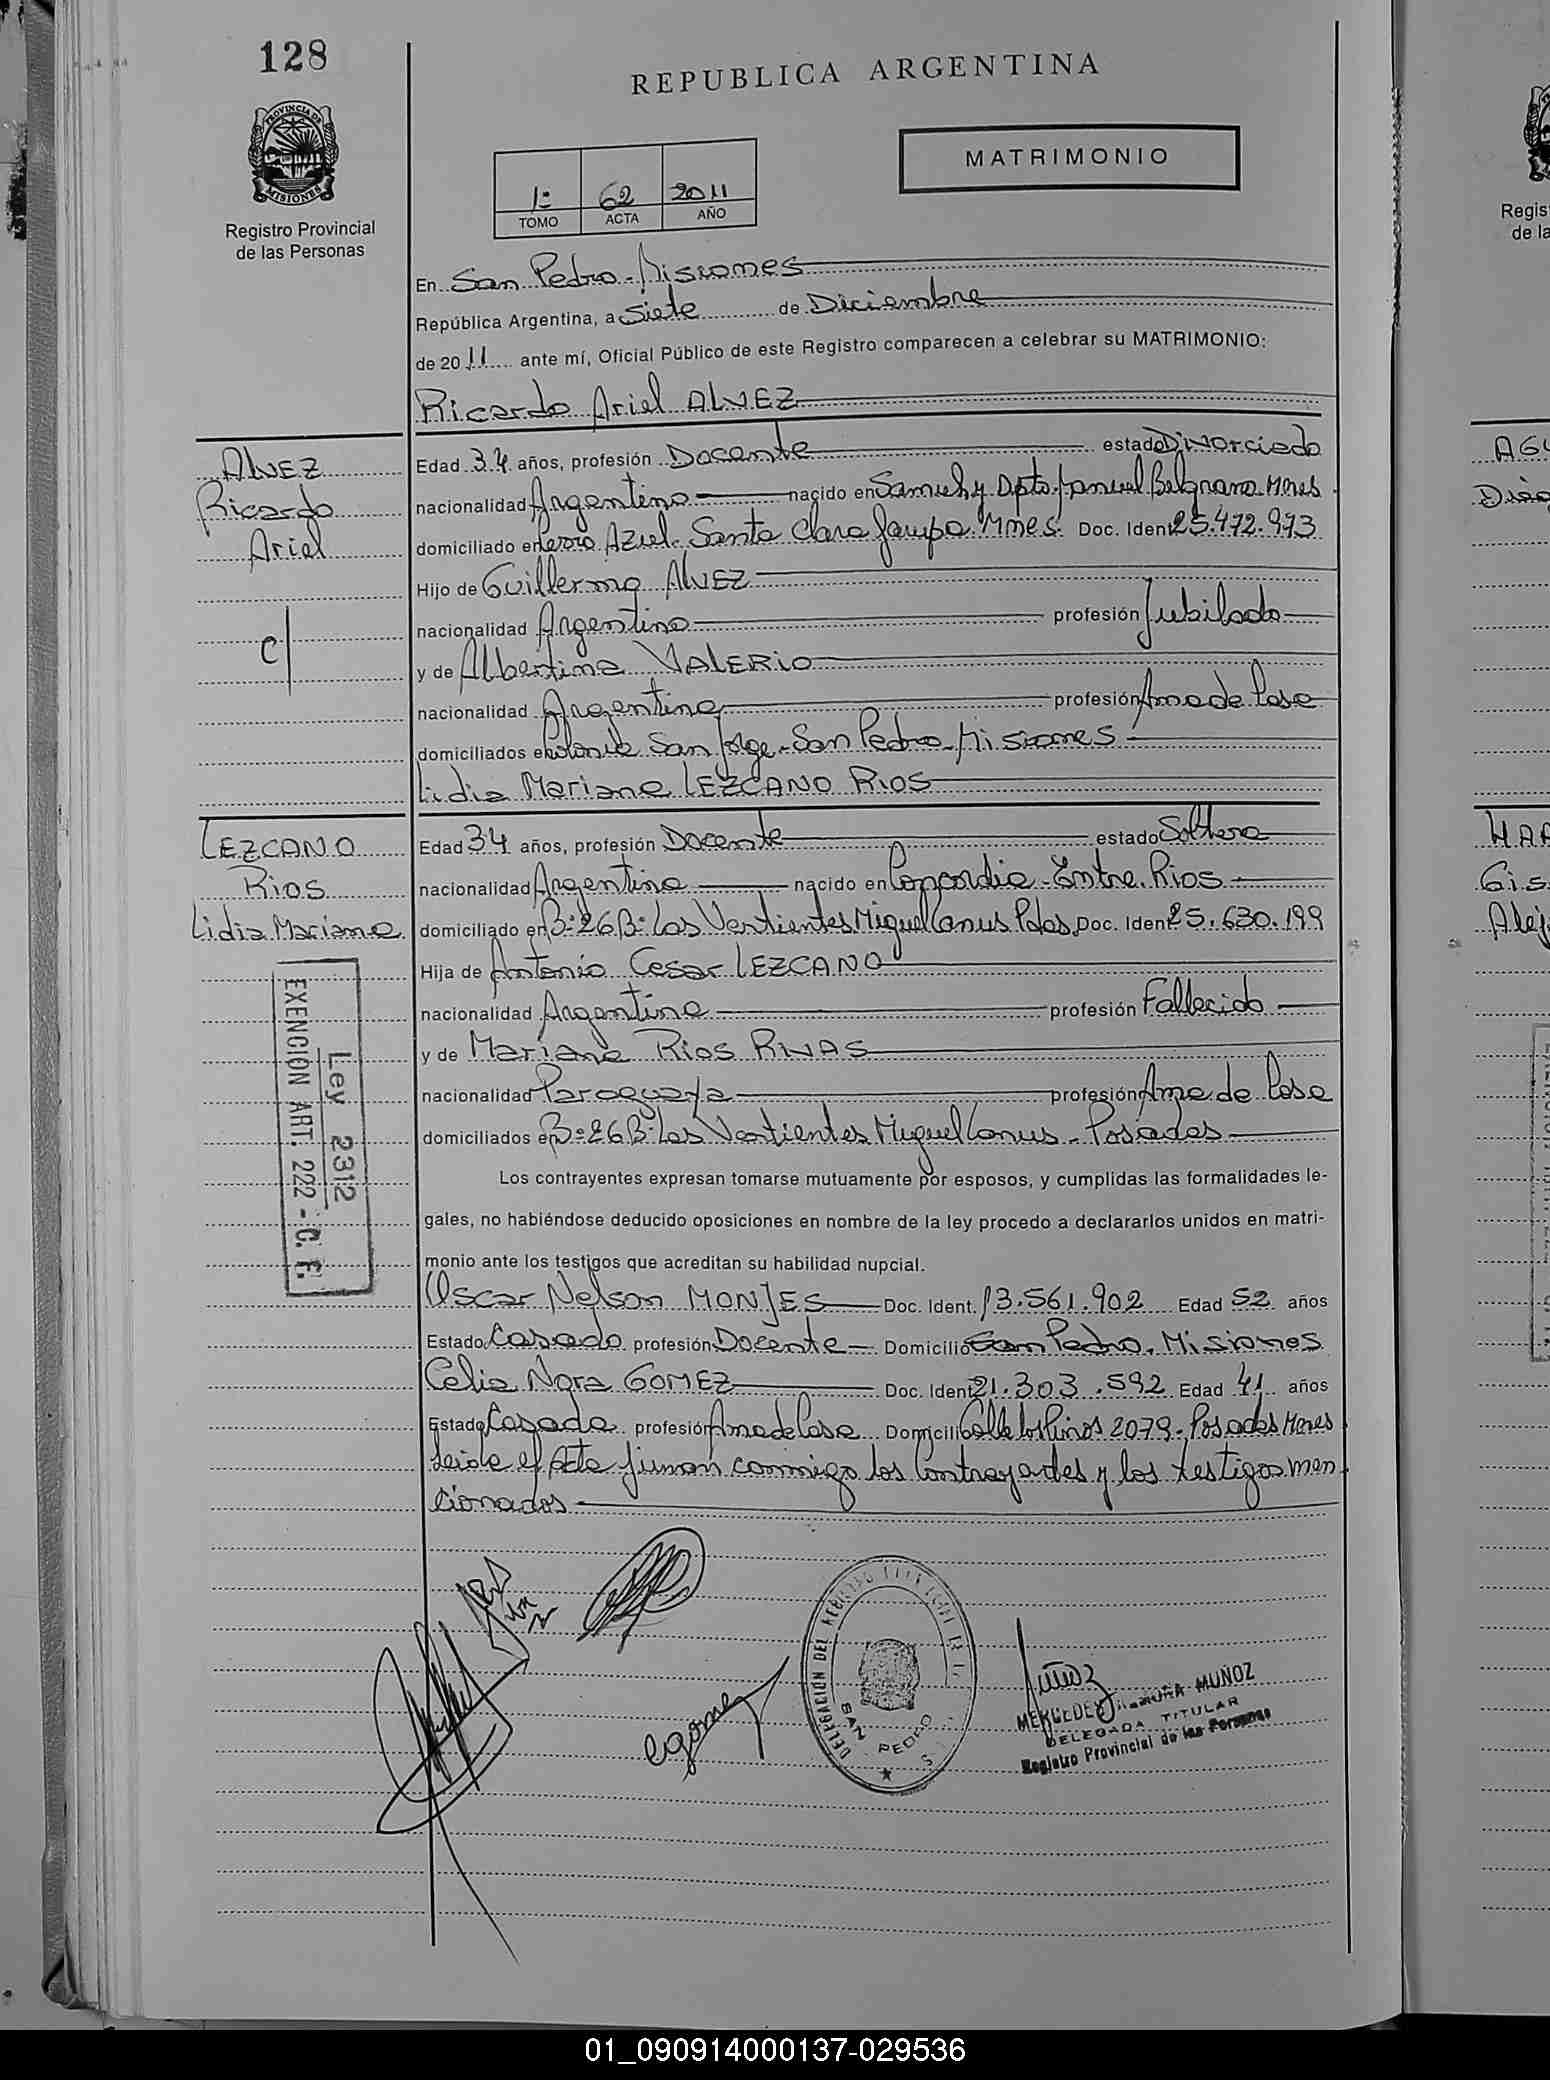 128
REPUBLICA ARGENTINA
PROVINCIA DE
MISIONES
Registro Provincial
de las Personas
MATRIMONIO
1º 62 2011
TOMO ACTA AÑO
En San Pedro - Misiones
República Argentina, a Siete de Diciembre
de 2011 ante mí, Oficial Público de este Registro comparecen a celebrar su MATRIMONIO:
Ricardo Ariel ALVEZ
ALVEZ
Ricardo
Ariel
c/
Edad 34 años, profesión Docente estado Divorciado
nacionalidad Argentina nacido en Dpto. Manuel Belgrano Mnes
domiciliado en Cerro Azul. Santa Clara Mnes. Doc. Ident 25.472.973
Hijo de Guillermo ALVEZ
nacionalidad Argentina profesión Jubilado
y de Albertina VALERIO
nacionalidad Argentina profesión Ama de Casa
domiciliados en Colonia San Jorge - San Pedro - Misiones
Lidia Mariana LEZCANO RIOS
LEZCANO
RIOS
Lidia Mariana
Edad 34 años, profesión Docente estado Soltera
nacionalidad Argentina nacido en Concordia - Entre Rios
domiciliado en B: 26 B: Las Vertientes Miguel Lanus Pdas. Doc. Ident 25.630.199
Hija de Antonio Cesar LEZCANO
nacionalidad Argentina profesión Fallecido
y de Mariana RIOS RIVAS
nacionalidad Paraguaya profesión Ama de Casa
domiciliados en B: 26 B: Las Vertientes Miguel Lanus - Posadas
Ley 2312
EXENCION ART. 222 - C. F.
Los contrayentes expresan tomarse mutuamente por esposos, y cumplidas las formalidades le-
gales, no habiéndose deducido oposiciones en nombre de la ley procedo a declararlos unidos en matri-
monio ante los testigos que acreditan su habilidad nupcial.
Oscar Nelson MONJES Doc. Ident. 13.561.902 Edad 52 años
Estado Casado profesión Docente Domicilio San Pedro. Misiones
Celia Nora GOMEZ Doc. Ident 21.303.592 Edad 41 años
Estado Casada profesión Ama de Casa Domicilio Calle los Pinos 2079 - Posadas Mnes
Leida el Acta firman conmigo los Contrayentes y los testigos men
cionados
cgomez
DELEGACION DEL REGISTRO PROVINCIAL
SAN PEDRO
Muñoz
MERCEDES MUÑOZ
DELEGADA TITULAR
Registro Provincial de las Personas
Regis
de la
AGU
HAA
Gis
Alej
01_090914000137-029536